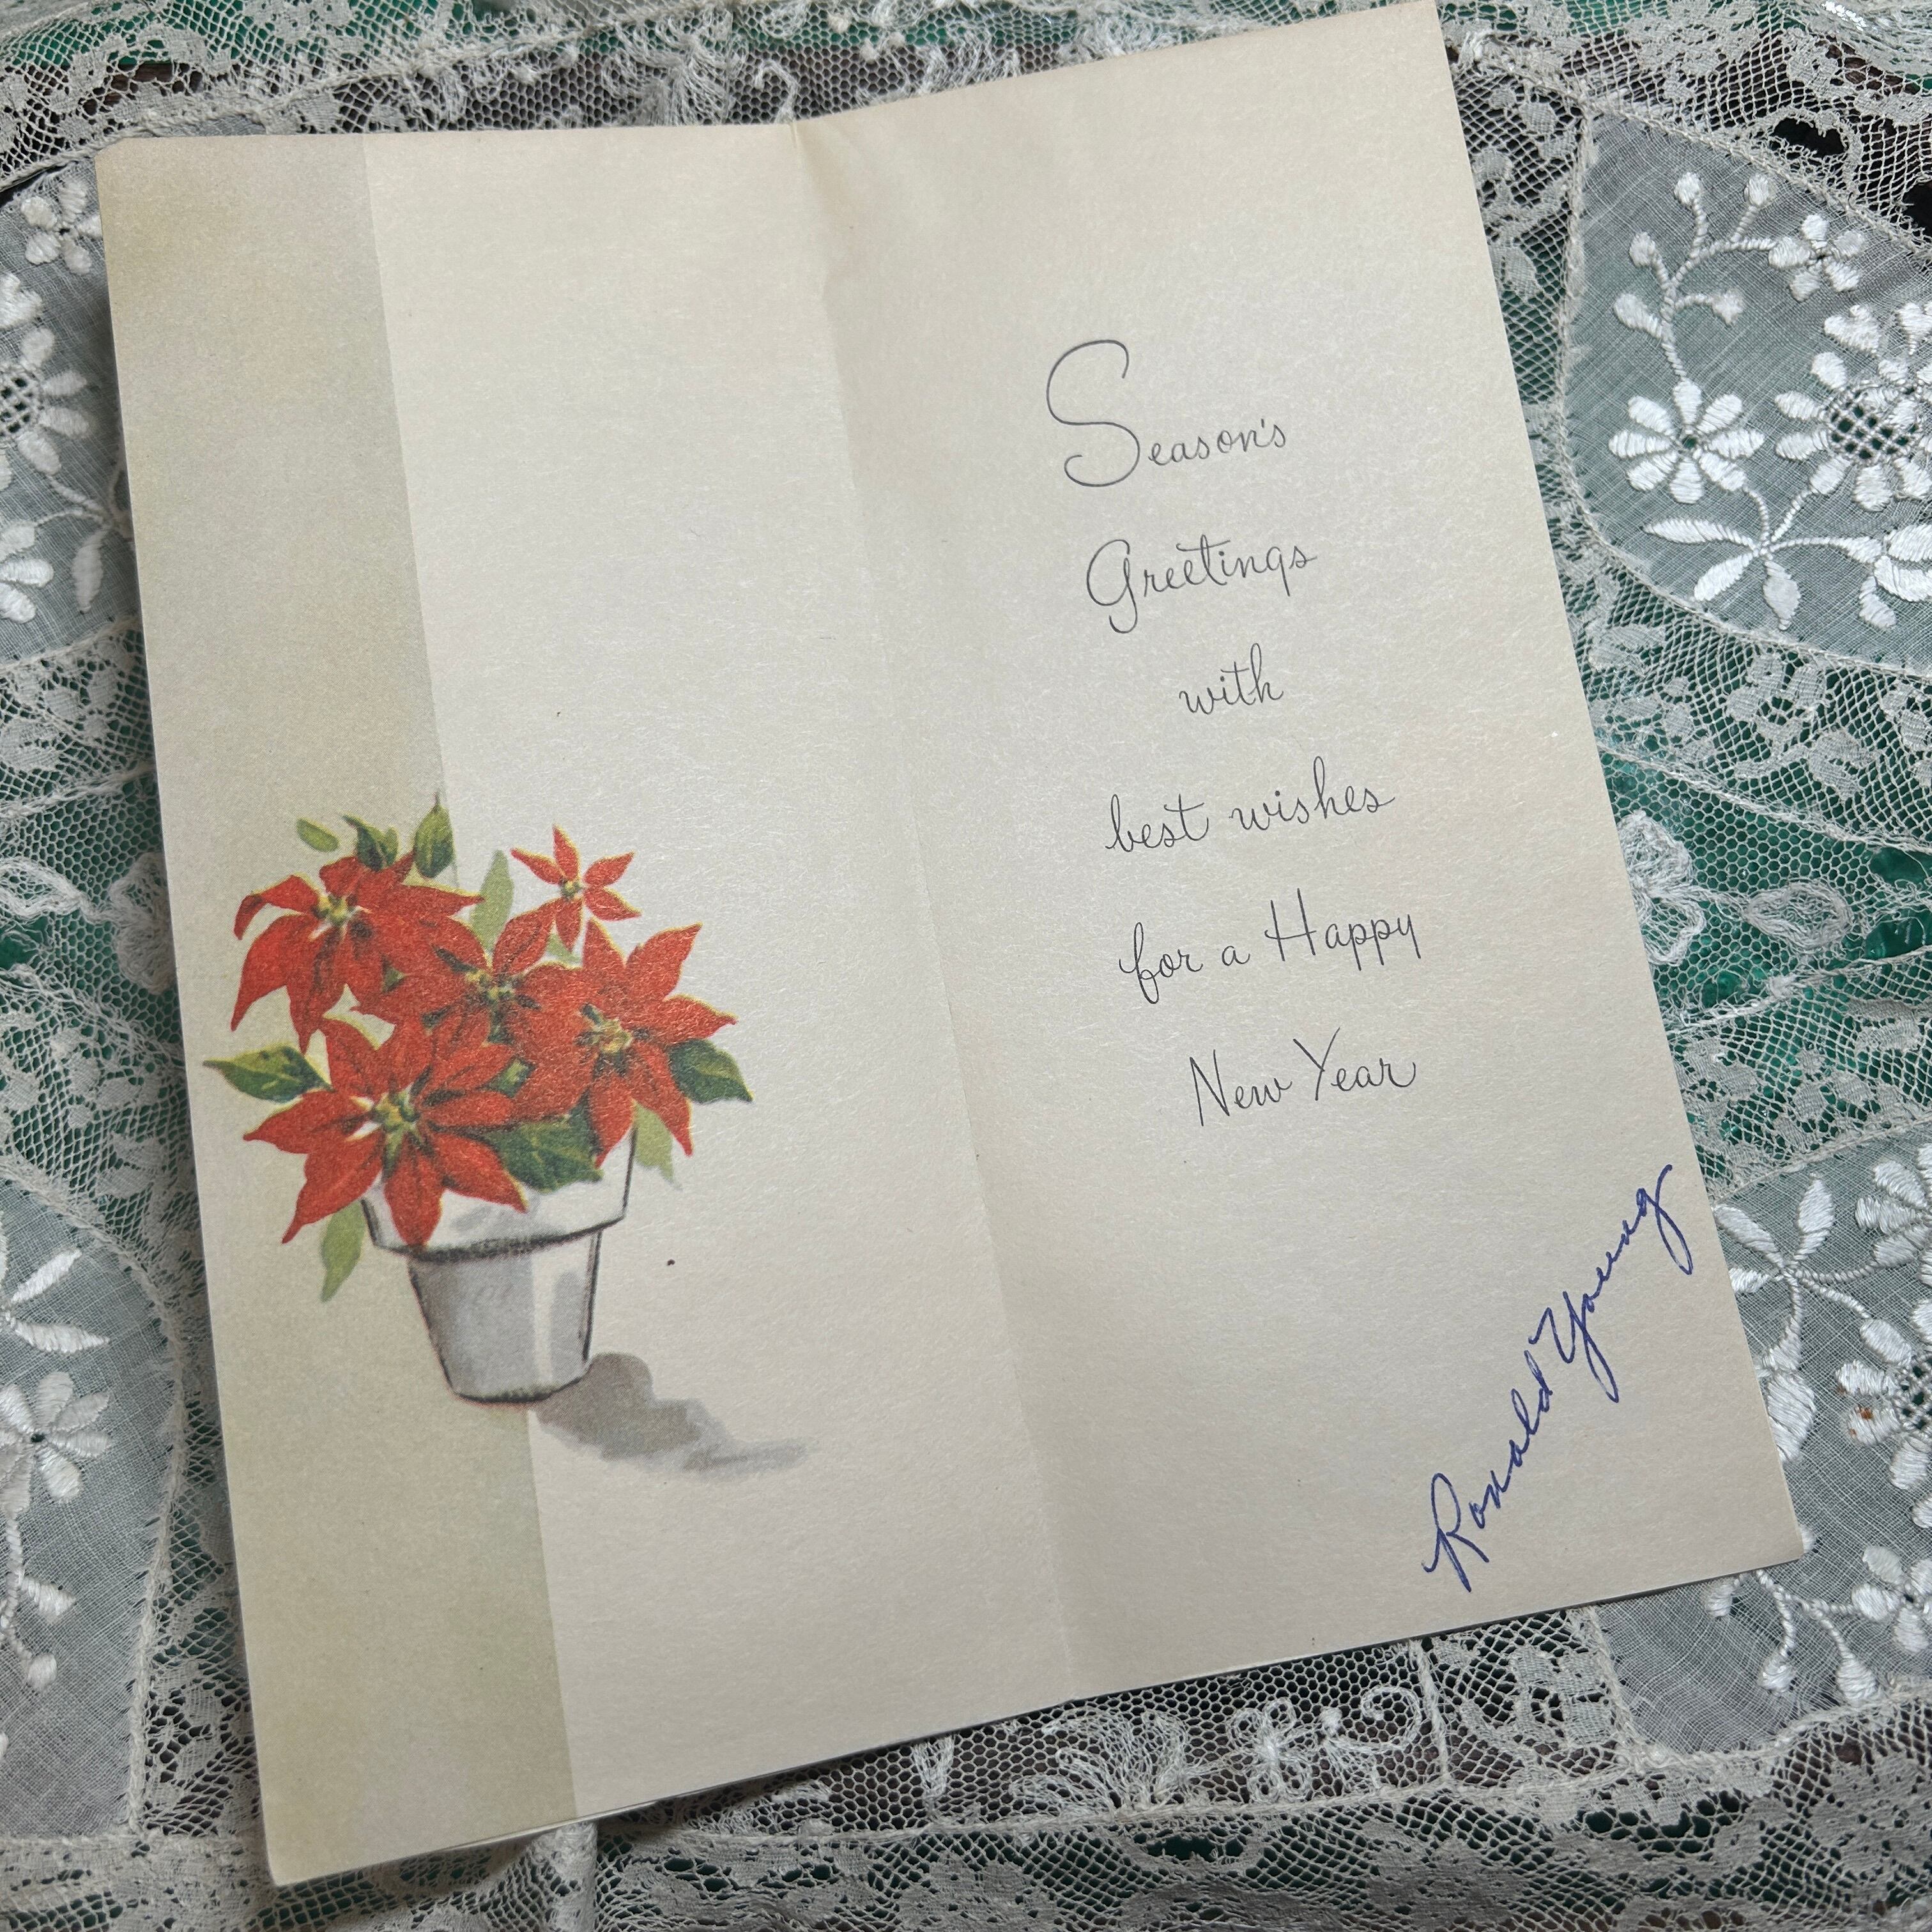 Season's
Greetings
with
best wishes
for a Happy
New Year
Ronald Young